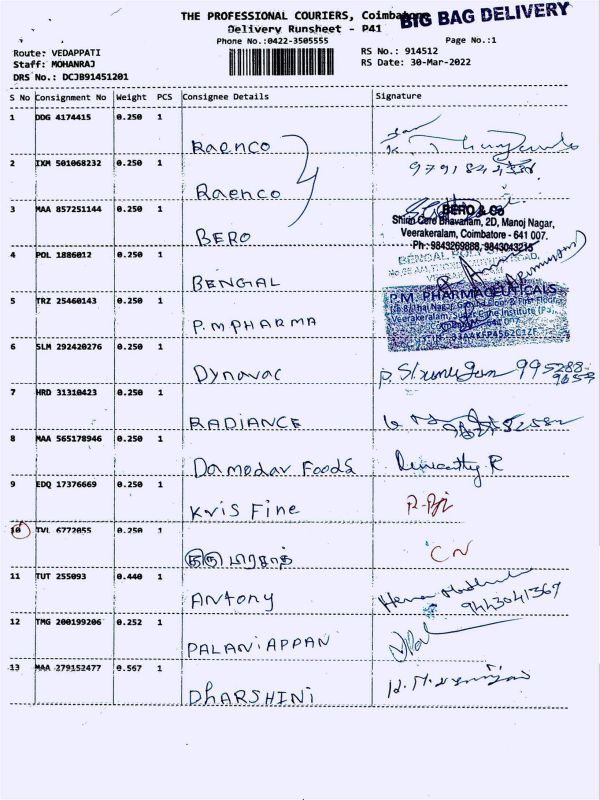 THE PROFESSIONAL COURIERS, Coimbatore
BIG BAG DELIVERY
Delivery Runsheet - P41
Phone No.:0422-3505555
Page No.:1
Route: VEDAPPATI
RS No.: 914512
Staff: MOHANRAJ
RS Date: 30-Mar-2022
DRS No.: DCJB91451201
S No Consignment No Weight PCS Consignee Details Signature
1 DDG 4174415 0.250 1
Raenco
2 IXM 501068232 0.250 1
Raenco
3 MAA 857251144 0.250 1
BERO
BERO & Co
Shirdi Care Bhavanam, 2D, Manoj Nagar,
Veerakeralam, Coimbatore - 641 007.
Ph : 9843269888, 9843043215
4 POL 1886012 0.250 1
BENGAL
BENGAL
5 TRZ 25460143 0.250 1
P.M PHARMA
P.M. PHARMACEUTICALS
6 SLM 292420276 0.250 1
Dynavac
7 HRD 31310423 0.250 1
RADIANCE
8 MAA 565178946 0.250 1
Damodar Foods
9 EDQ 17376669 0.250 1
Kris Fine
10 TVL 6772055 0.250 1
CN
11 TUT 255093 0.440 1
Antony
9443041369
12 TMG 200199206 0.252 1
PALANiAPPAN
13 MAA 279152477 0.567 1
DhARSHINi